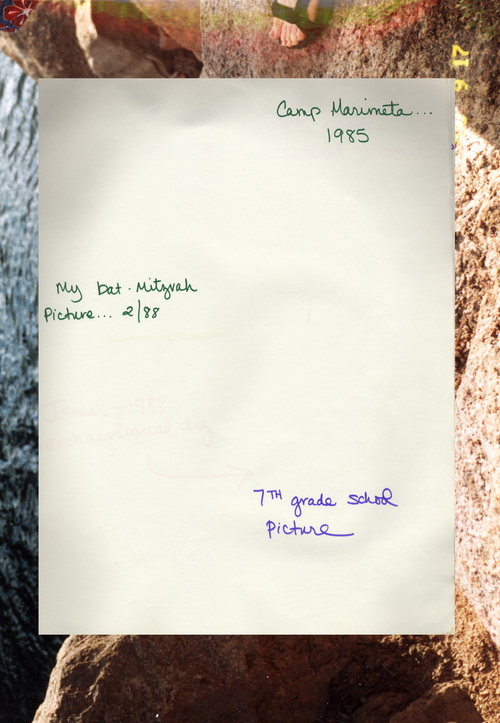 Camp Marimeta...
1985
My bat-Mitzvah
Picture... 2/88
Israel - 1988
archaeological dig
7TH grade school
Picture
9 17